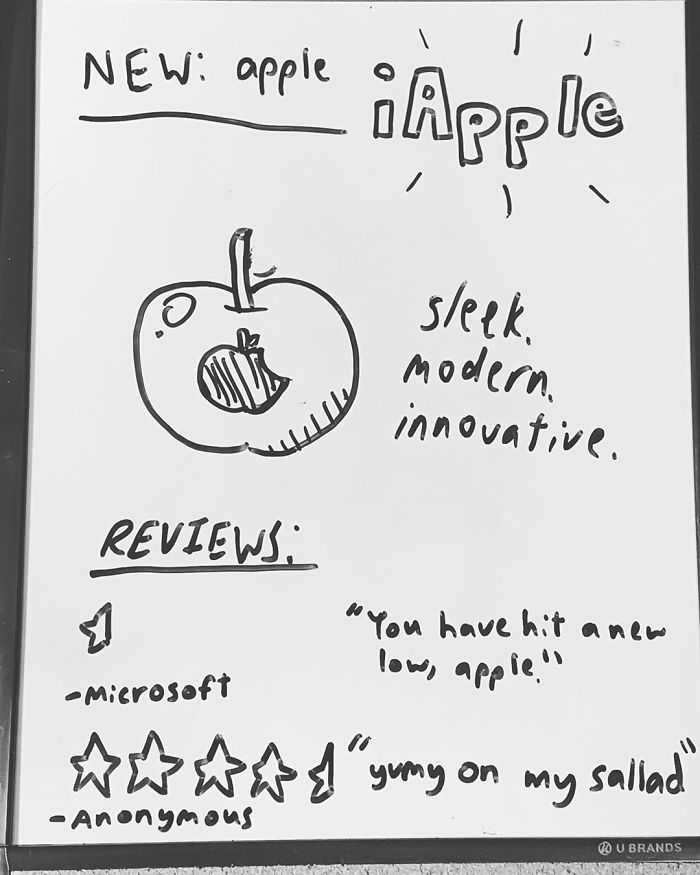 NEW: apple iApple
sleek.
modern.
innovative.
REVIEWS:
"You have hit a new
low, apple."
-Microsoft
"yumy on my sallad"
-Anonymous
U BRANDS